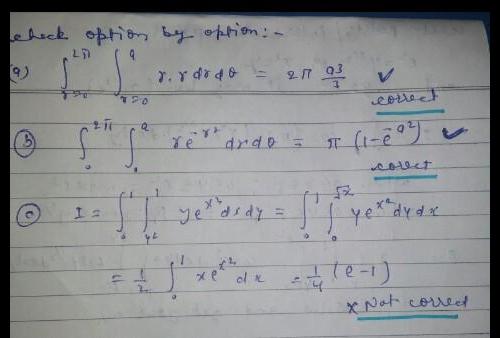 check option by option:-
(a) ∫_{r=0}^{2π} ∫_{r=0}^{a} r.r dr dθ = 2π a3/3 ✓
correct
(b) ∫_{0}^{2π} ∫_{0}^{a} r e^{-r^2} dr dθ = π (1-e^{-a^2}) ✓
correct
(c) I = ∫_{0}^{1} ∫_{y^2}^{1} y e^{x^2} dx dy = ∫_{0}^{1} ∫_{0}^{√x} y e^{x^2} dy dx
= 1/2 ∫_{0}^{1} x e^{x^2} dx = 1/4 (e-1)
x Not correct